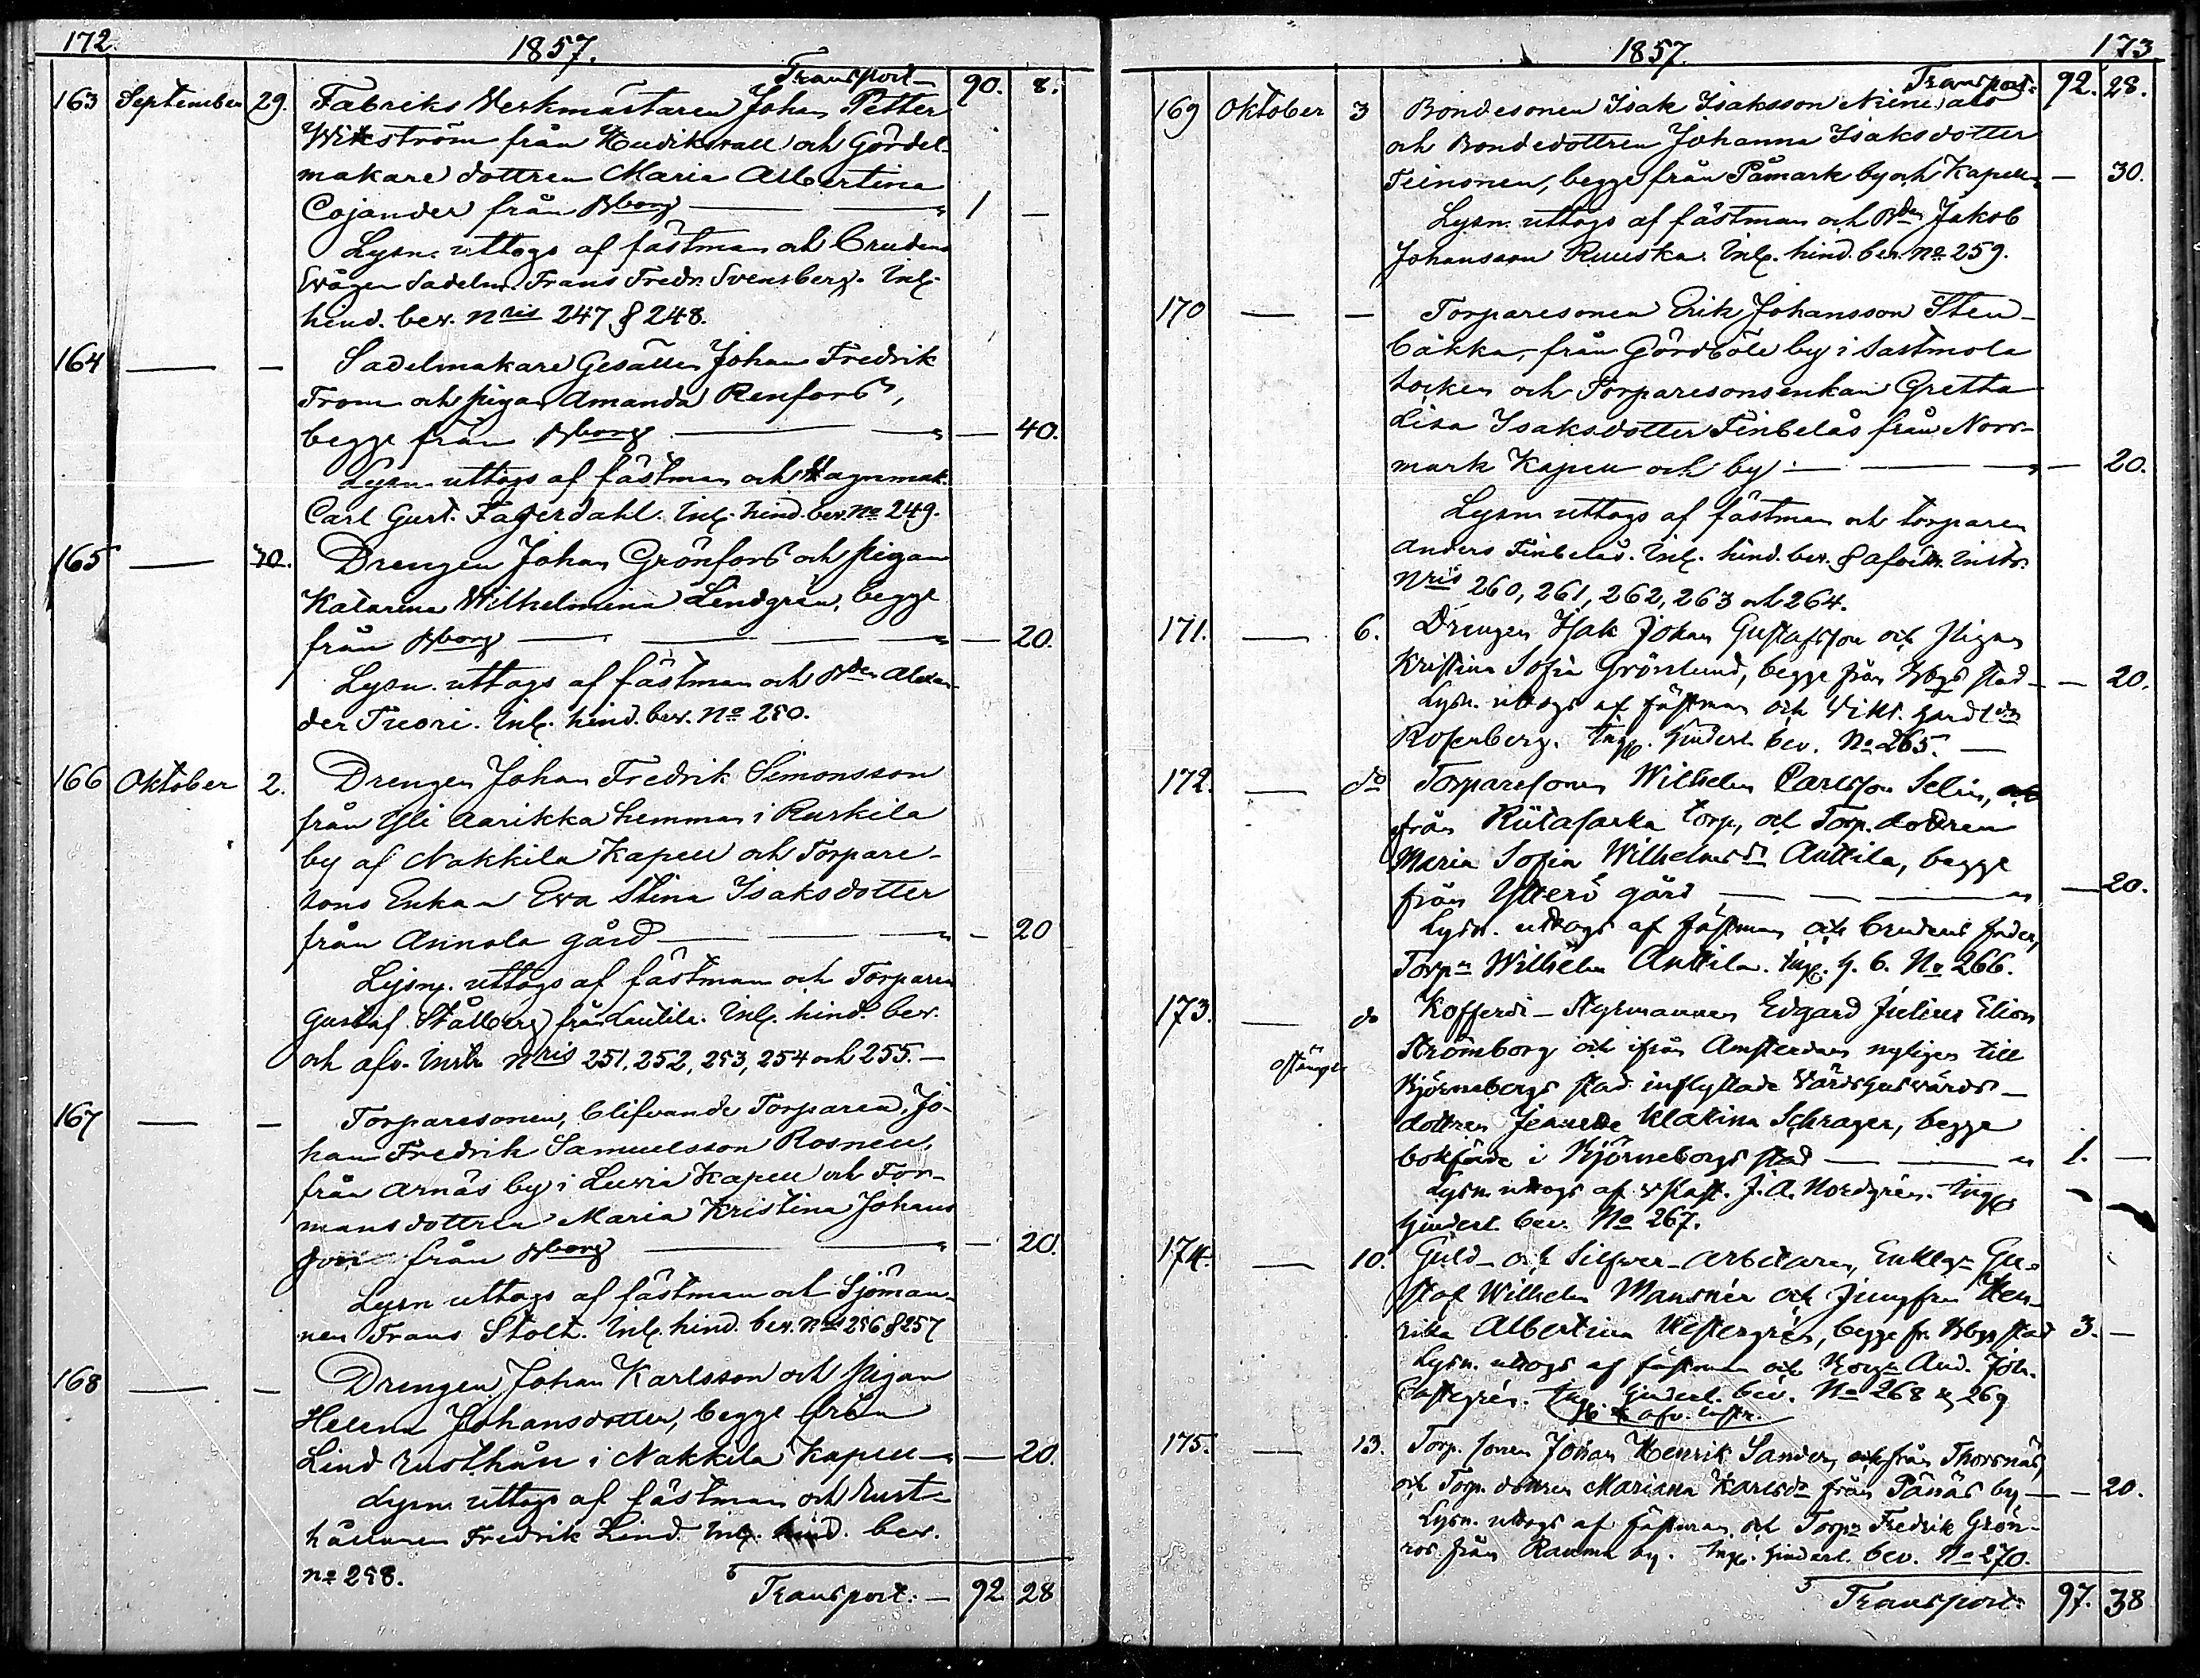 172.
1857.
Transport
90. 8.
163 September 29. Fabriks Verkmästaren Johan Petter
Wikström från Hudiksvall och Gördel-
makare dottren Maria Albertina
Cojander från Bborg — " 1 —
Lysn. uttogs af fästman och brudens
Svåger Sadelm. Frans Fredr. Svensberg. Inl.
hind. bev. Nris 247 & 248.
164 — — Sadelmakare Gesällen Johan Fredrik
From och pigan Amanda Renfors,
begge från Bborg — " — 40.
Lysn. uttogs af fästman och Vagnmak.
Carl Gust. Fagerdahl. Inl. hind. bev. No 249.
165 — 30. Drengen Johan Grönfors och pigan
Katarina Wilhelmina Lindgrén, begge
från Bborg — — — " — 20.
Lysn. uttogs af fästman och Bden Alexan-
der Tuori. Inl. hind. bev. No 250.
166 Oktober 2. Drengen Johan Fredrik Simonsson
från Yli Aarikka hemman i Ruskila
by af Nakkila Kapell och Torpare-
sons Enkan Eva Stina Isaksdotter
från Annola gård — — " — 20
Lysn. uttogs af fästman och Torparen
Gustaf Stålberg från Lautila. Inl. hind. bev.
och afv. Instr. Nris 251, 252, 253, 254 och 255. —
167 — — Torparesonen, blifvande Torparen, Jo-
han Fredrik Samuelsson Rosnell,
från Arnäs by i Luvia Kapell och For-
mansdottren Maria Kristina Johans
från Bborg — " — 20.
Lysn uttogs af fästman och Sjöman-
nen Frans Stolt. Inl. hind. bev. Nris 256 & 257
168 — — Drengen Johan Karlsson och pigan
Helena Johansdotter, begge från
Lind rusthåll i Nakkila Kapell — " — 20.
Lysn. uttogs af fästman och Rust-
hållaren Fredrik Lind. Inl. hind. bev.
No 258.
Transport. — 92 28
1857.
173
Transport. 92. 28.
169 Oktober 3 Bondesonen Isak Isaksson Nieni
och Bondedottren Johanna Isaksdotter
Teinonen, begge från Påmark by och Kapell " — 30.
Lysn. uttogs af fästman och Bden Jakob
Johansson Ruuska. Inl. hind. bev. No 259.
170 — — Torparesonen Erik Johansson Sten-
backa, från Gördböle by i Sastmola
socken och Torparesonsenkan Gretha
Lisa Isaksdotter Finbelås från Norr-
mark Kapell och by — — " — 20.
Lysn uttogs af fästman och torparen
Anders Finbelås. Inl. hind. bev. & afvittr. Instr.
Nris 260, 261, 262, 263 och 264.
171. — 6. Drengen Isak Johan Gustafsson och Pigan
Kristina Sofia Grönlund, begge från Bbgs stad — — 20.
Lysn. uttogs af fästman och Vikt. Gardt
Rosenberg. Ingf. Hinderl. bev. No 265. —
172. — do Torparesonen Wilhelm Carlsson Selin,
från Riitasarka torp, och Torp. dottren
Maria Sofia Wilhelmsdr Anttila, begge
från Ytterö gård — — " — 20.
Lysn. uttogs af fästman och brudens fader,
Torpn Wilhelm Anttila. Ingf. h. b. No 266.
173. — do Kofferdi-Styrmannen Edgard Julius Elion
Strömborg och ifrån Amsterdam nyligen till
Björneborgs stad inflyttade Värdshusvärds-
dottren Jeanette Klasina Schrager, begge
bokförde i Björneborgs stad — — " 1. —
Lysn. uttogs af J. A. Nordgrén. Ingf
hinderl. bev. No 267.
174. — 10. Guld- och Silfver-Arbetaren, Enkl. Gu-
staf Wilhelm Mansnér och Jungfru Hen-
rika Albertina Westergrén, begge fr. Bbgs stad 3. —
Lysn. uttogs af fästman och Borgn And. Joh.
Castegrén. Ingf Hinderl. bev. No 268 & 269
afv. instr.
175. — 13. Torp. sonen Johan Henrik Sander, från Thorsnäs,
och Torp. dottren Mariana Karlsdr från Pånäs by — — 20.
Lysn. uttogs af fästman och Torpn Fredrik Grön-
ros från Rauma by. Ingf. hinderl. bev. No 270.
Transport: 97. 38